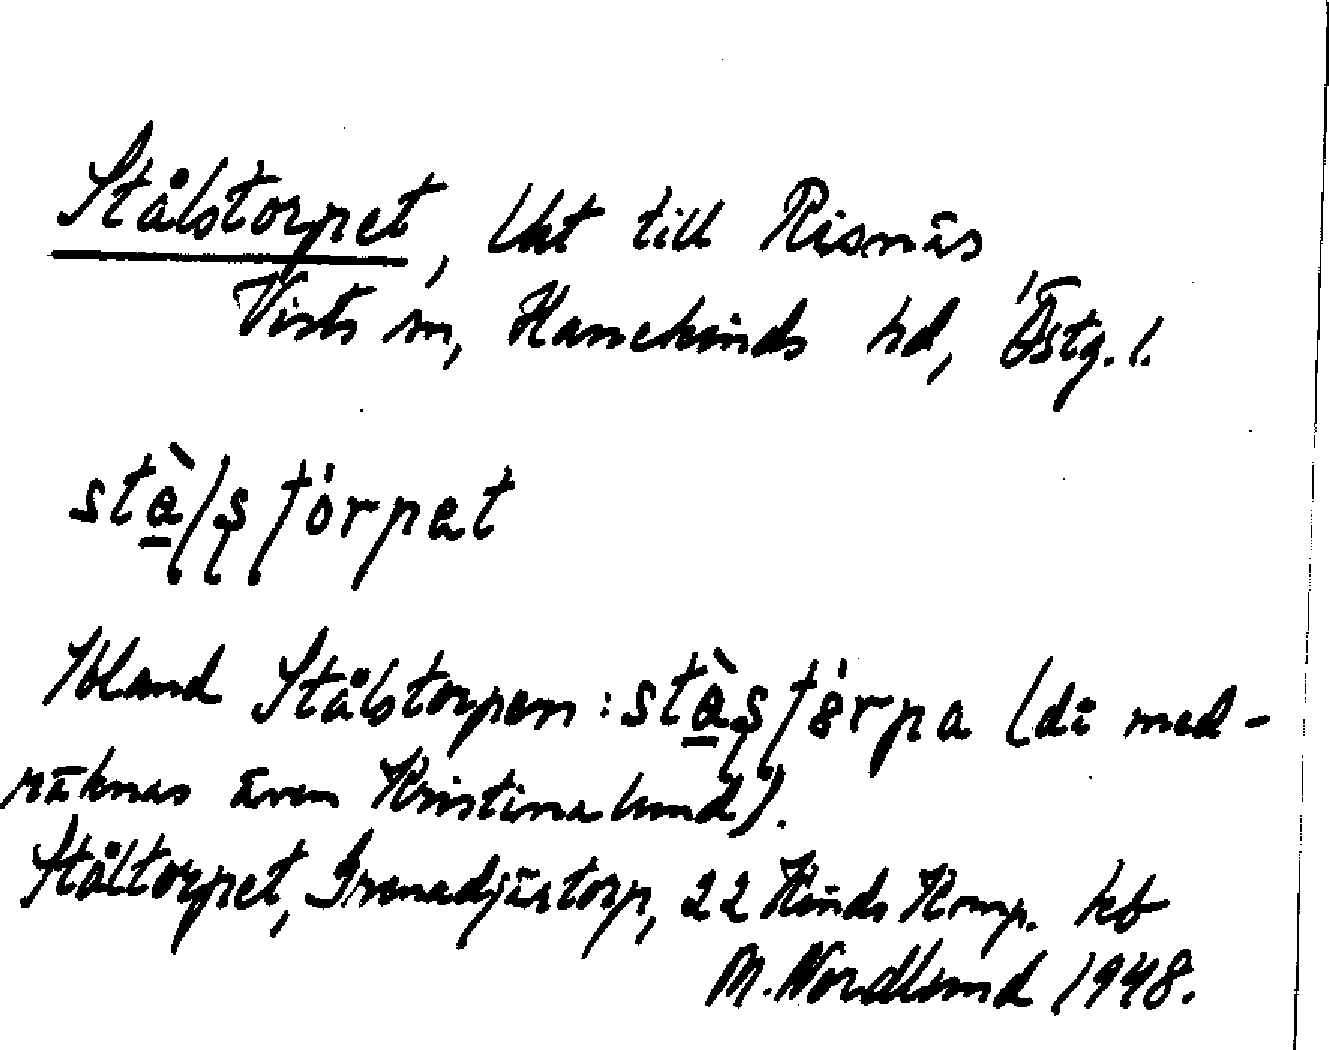 Stålstorpet, lht till Risnäs
Vists sn, Hanekinds hd, Östg. l.
stà̱lʂ tórpet
Ibland Stålstorpen: stà̱ʂ tórpa (då med-
räknas även Kristinalund).
Ståltorpet, Grenadjärstorp, 22 Kinds Komp. kb
M. Nordlund 1948.